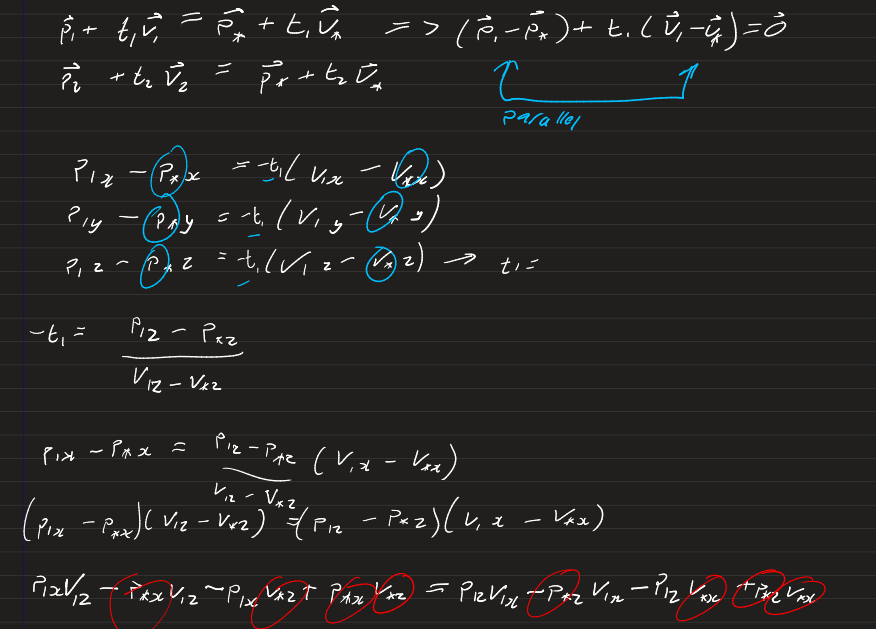 p⃗₁ + t₁v⃗₁ = p⃗* + t₁v⃗* => (p⃗₁ - p⃗*) + t₁(v⃗₁ - v⃗*) = 0⃗
p⃗₂ + t₂v⃗₂ = p⃗* + t₂v⃗*
parallel
P₁x - P*x = -t₁(V₁x - V*x)
P₁y - P*y = -t₁(V₁y - V*y)
P₁z - P*z = -t₁(V₁z - V*z) → t₁ =
-t₁ = (P₁z - P*z) / (V₁z - V*z)
P₁x - P*x = (P₁z - P*z) / (V₁z - V*z) (V₁x - V*x)
(P₁x - P*x)(V₁z - V*z) = (P₁z - P*z)(V₁x - V*x)
P₁xV₁z - P*xV₁z - P₁xV*z + P*xV*z = P₁zV₁x - P*zV₁x - P₁zV*x + P*zV*x